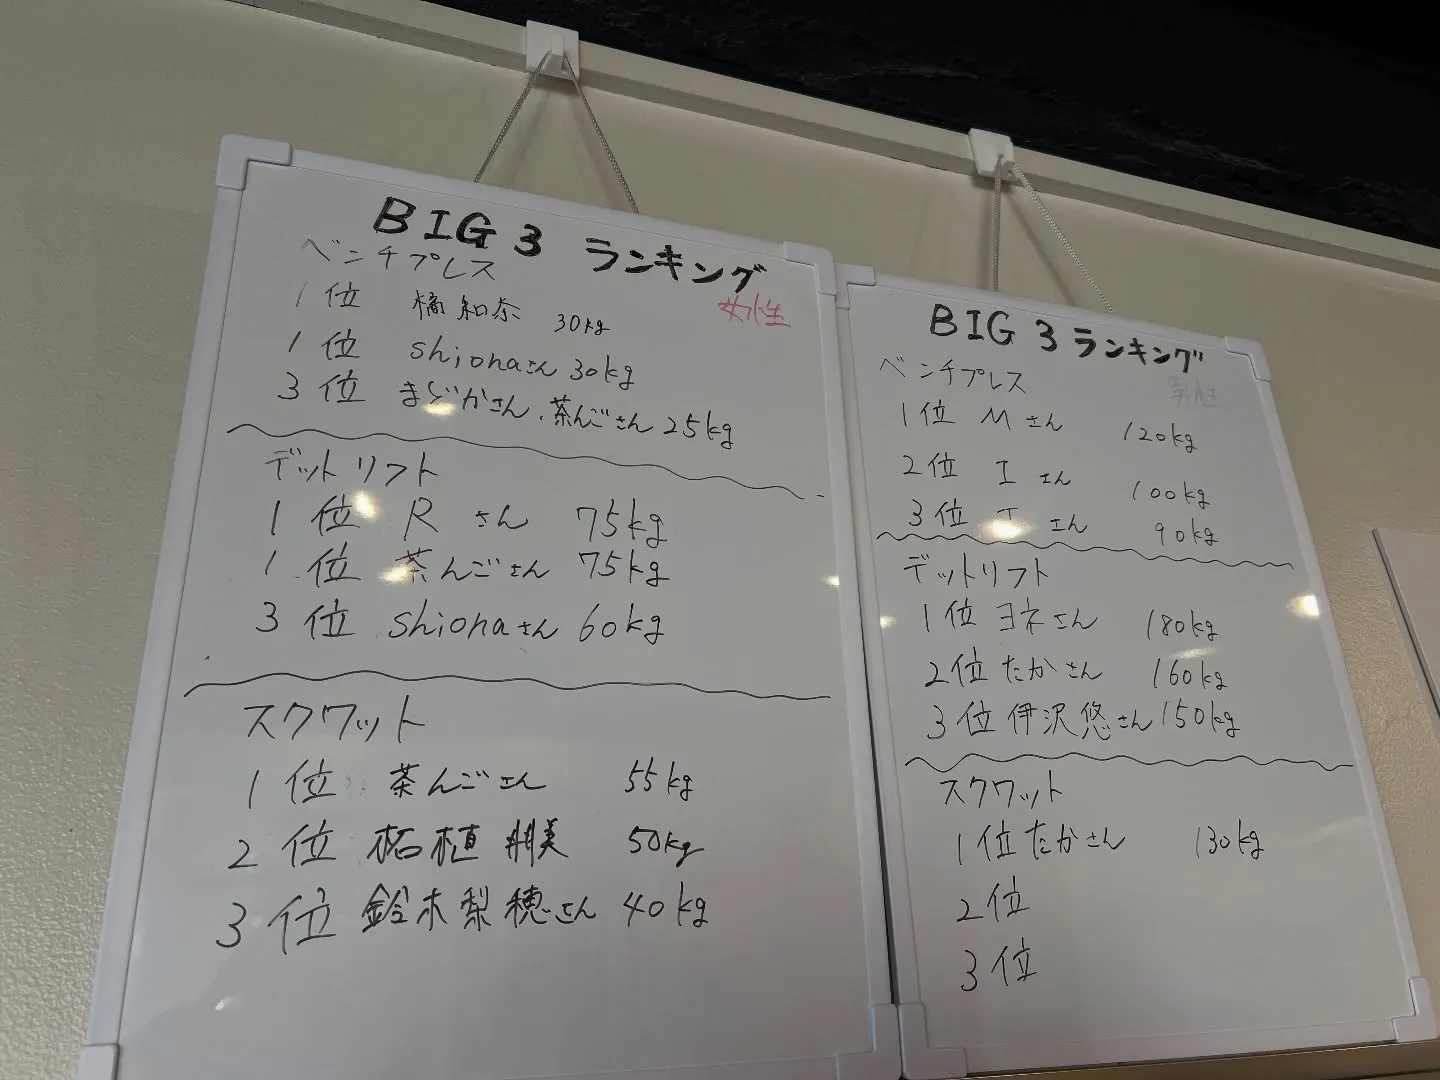 BIG 3 ランキング
女性
ベンチプレス
1位 橘 和奈 30kg
1位 shionaさん 30kg
3位 まどかさん、茶んごさん 25kg
デットリフト
1位 R さん 75kg
1位 茶んごさん 75kg
3位 shionaさん 60kg
スクワット
1位 茶んごさん 55kg
2位 柘植 朋美 50kg
3位 鈴木梨穂さん 40kg
BIG 3 ランキング
男性
ベンチプレス
1位 M さん 120kg
2位 I さん 100kg
3位 さん 90kg
デットリフト
1位 ヨネさん 180kg
2位 たかさん 160kg
3位 伊沢悠さん 150kg
スクワット
1位 たかさん 130kg
2位
3位